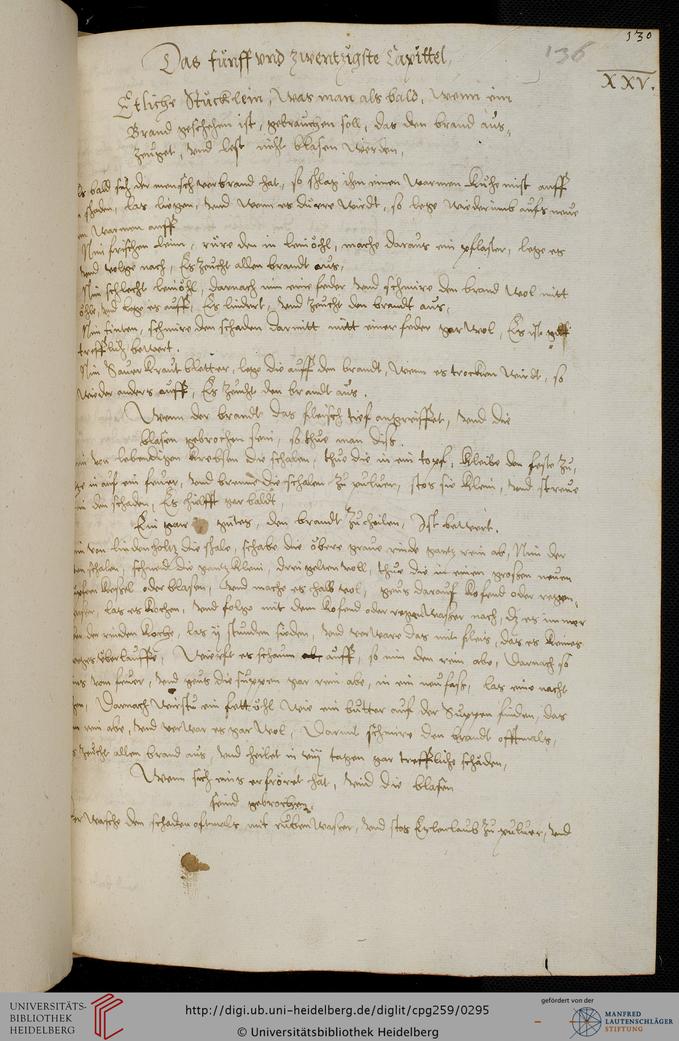 130
136
XXV.
Das fünff vnd zwentzigste Capittel,
Etliche Stücklein, Was man als bald, wenn ein
Brand geschehen ist, gebrauchen soll, das den brand aus,
zeuget, vnd lest nicht blasen werden,
bald sich der mensch verbrand hat, so schlag ihn einen warmen Kuhe mist auff
schaden, las liegen, vnd wenn es dürre wirdt, so lege wiederumb auffs neue
warmen auff
Nim frischen, rüre den in leinöhl, mache daraus ein pflaster, lege es
vnd volge nach, Es zeucht allen brandt aus,
Nim schlecht leinöhl, darnach nim eine feder vnd schmire den brand wol mitt
öhle, vnd lege es auff, Es lindert, vnd zeucht den brandt aus,
Nim tinten, schmire den schaden darmitt mitt einer feder gar wol, Es ist
trefflich bewert.
Nim Sauer Kraut bletter, lege die auff den brandt, Wenn es trocken wirdt, so
wieder anders auff, Es zeucht den brandt aus.
Wenn der brandt das fleisch tief angreiffet, vnd die
blasen gebrochen sein, so thue man diss.
von lebendigen krebsen die schalen, thue die in ein topf, kleibe den feste zu,
in auf ein feuer, vnd brenne die schalen zu puluer, stos sie klein, vnd streue
in den schaden, Es hilfft gar baldt,
Ein gar gutes, den brandt zu heilen, Ist bewert.
von lindenholtz die schale, schabe die öbere graue rinde gantz rein ab, Nim der
schalen, schneid die gantz klein, drei gelten voll, thue die in einen grosen neuen
kessel oder blasen, vnd mache es halb vol, geus darauf kofend oder regen,
las es kochen, vnd folge mit dem kofend oder regenwasser nach, das es immer
den rinden koche, las ij stunden sieden, vnd verware das mit fleis, das es keines
weges überlauffe, Wirft es schaum auff, so nim den rein abe, Darnach so
vom feuer, vnd geus die suppen gar rein abe, in ein neu fass, las eine nacht
Darnach wirstu ein fett öhl wie ein butter auf der Suppen finden, das
rein abe, vnd verwar es gar wol, Darmit schmire den brandt offtmals,
zeucht allen brand aus, vnd heilet in viij tagen gar treffliche schäden,
Wenn sich eins erfröret hat, vnd die blasen
seind gebrochen,
wasche den schaden oftmals, mit rubenwasser, vnd stos Erlenlaub zu puluer, vnd
UNIVERSITÄTS-
BIBLIOTHEK
HEIDELBERG
http://digi.ub.uni-heidelberg.de/diglit/cpg259/0295
© Universitätsbibliothek Heidelberg
gefördert von der
MANFRED
LAUTENSCHLÄGER
STIFTUNG